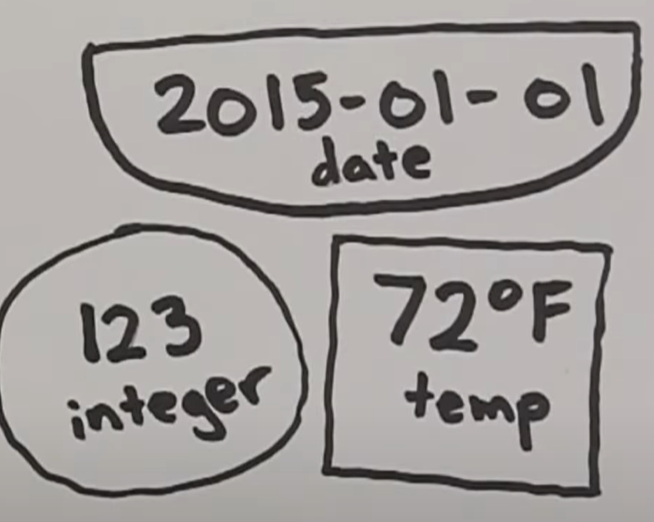 2015-01-01
date
123
integer
72°F
temp